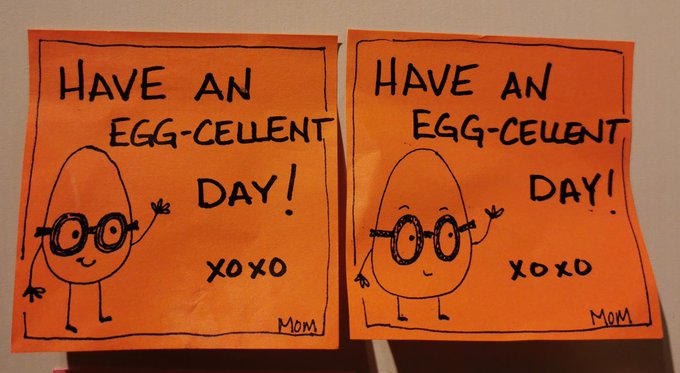 HAVE AN
EGG-CELLENT
DAY!
XOXO
MOM
HAVE AN
EGG-CELLENT
DAY!
XOXO
MOM